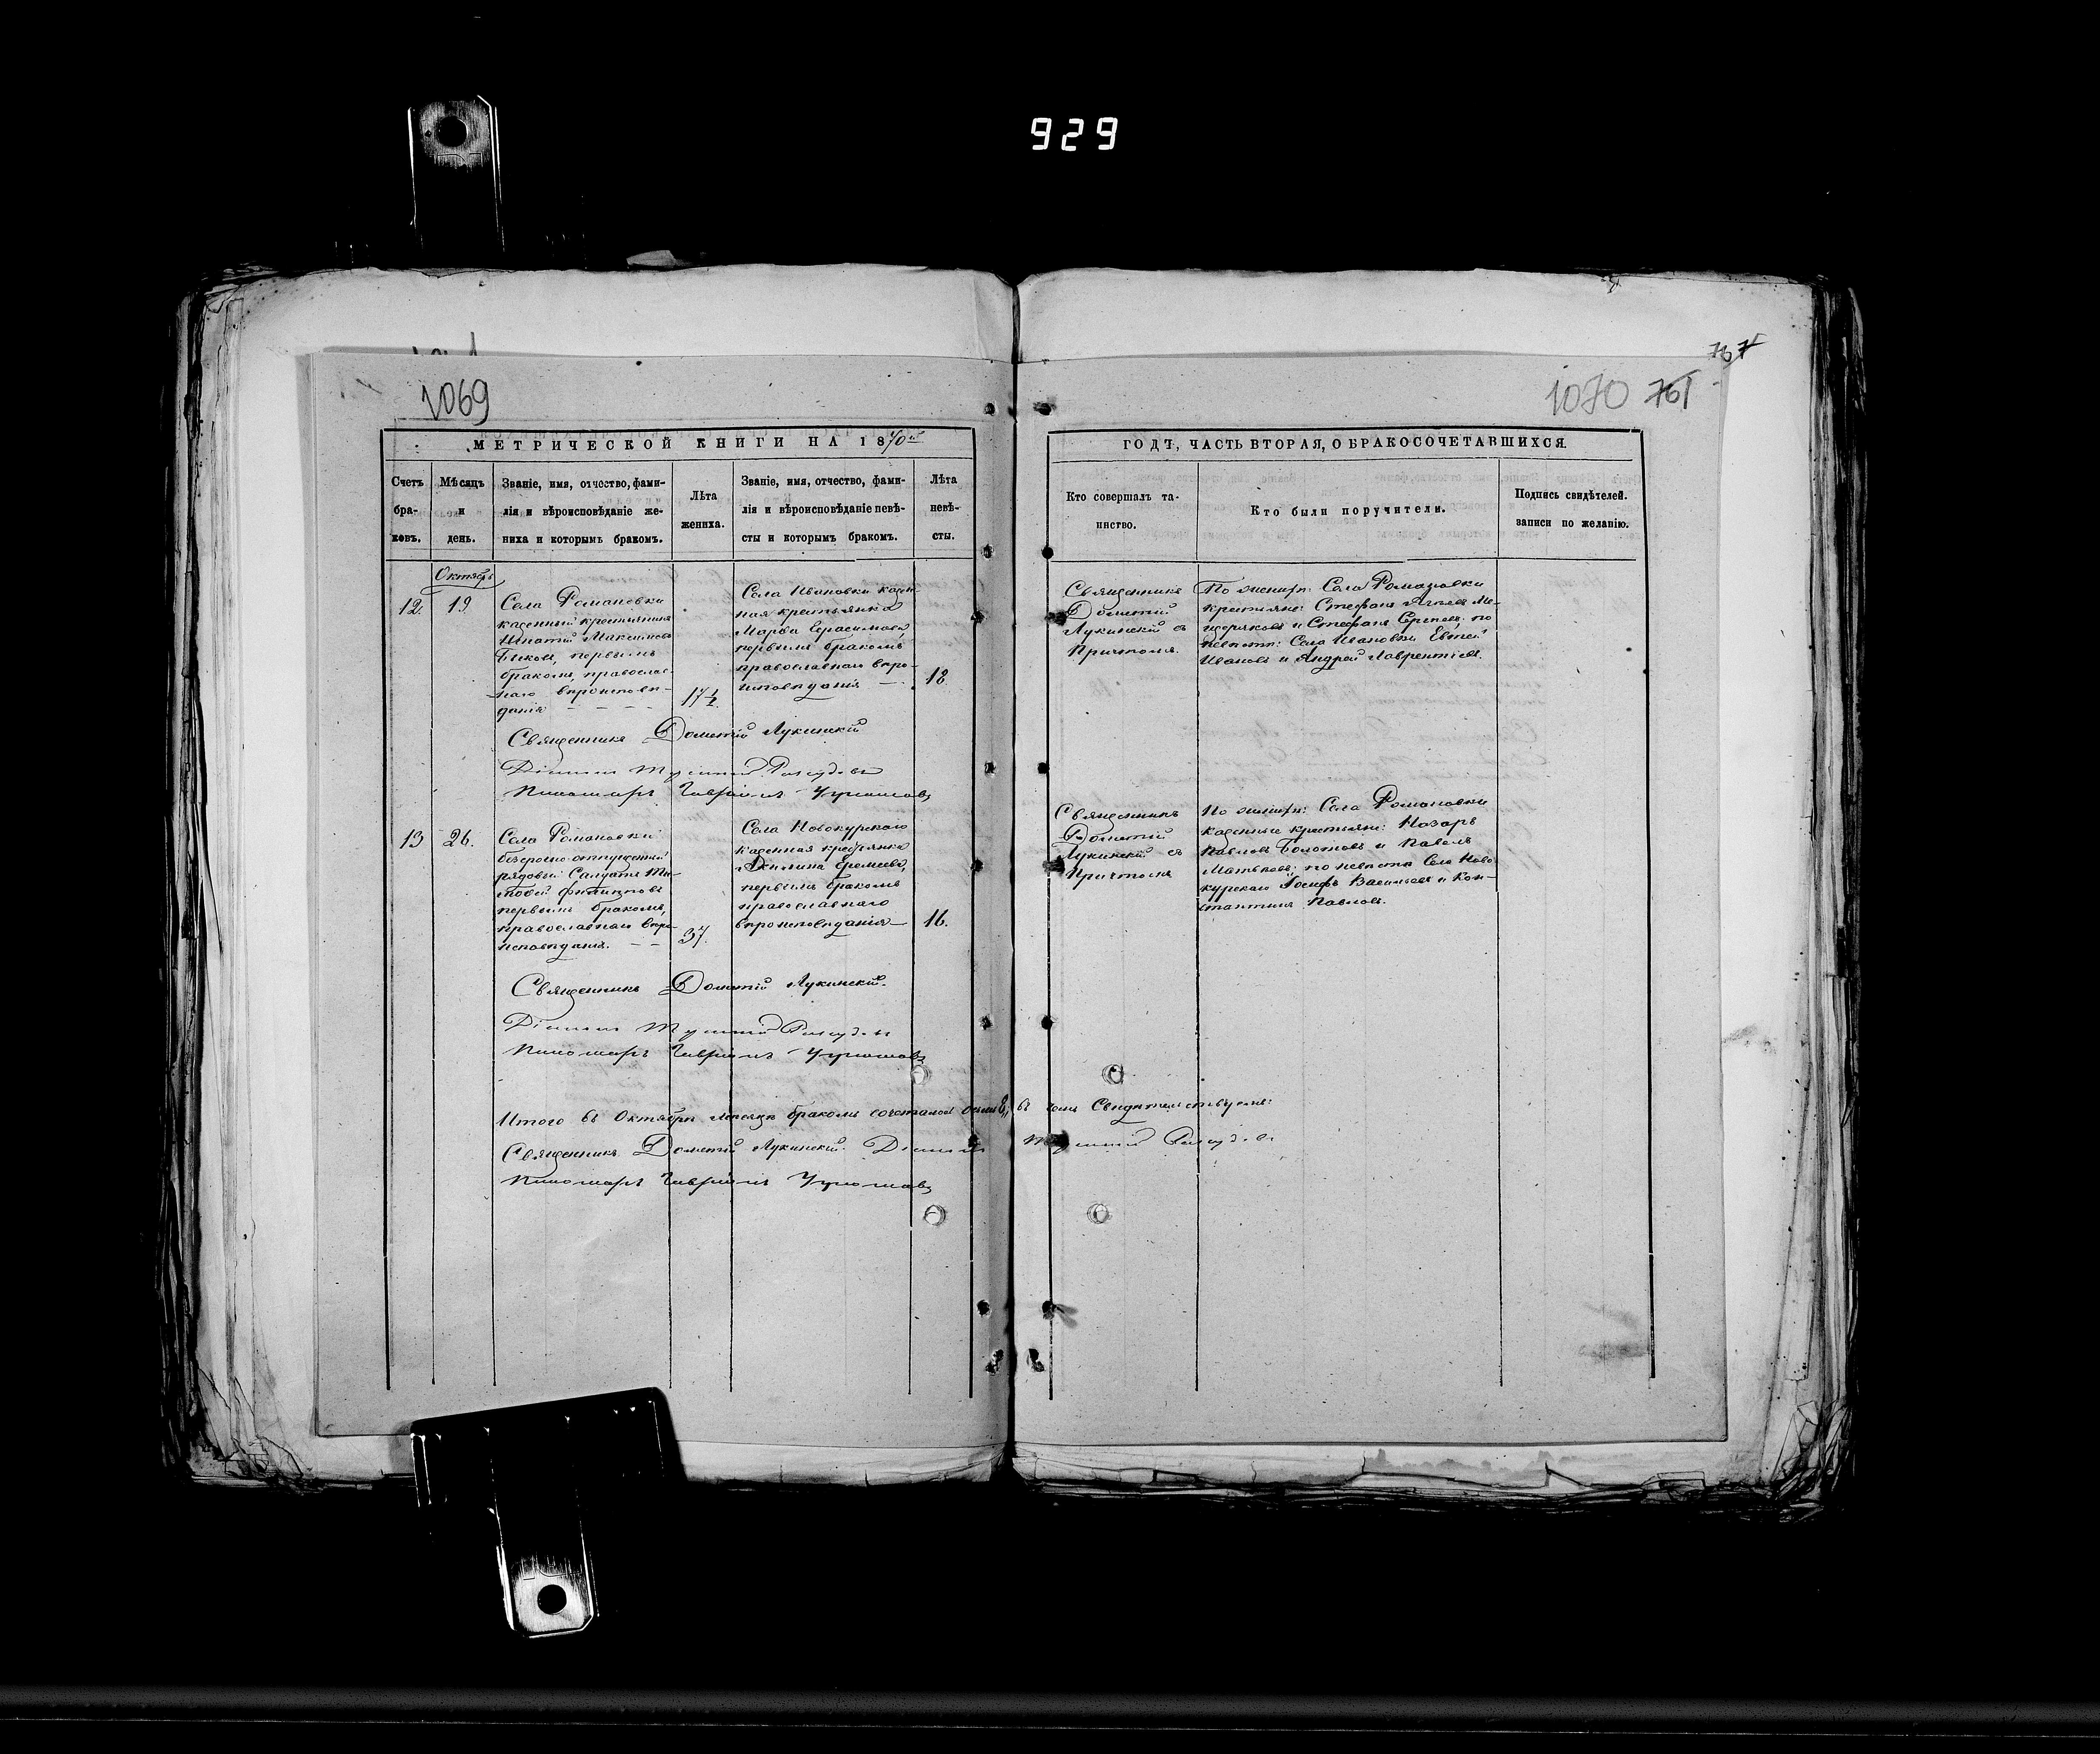 929
767
1069
1070 761
МЕТРИЧЕСКОЙ КНИГИ НА 1870й
ГОДЪ, ЧАСТЬ ВТОРАЯ, О БРАКОСОЧЕТАВШИХСЯ.
Счетъ бра-ковъ.
Мѣсяцъ и день.
Званіе, имя, отчество, фами-
лія и вѣроисповѣданіе же-
ниха и которымъ бракомъ.
Лѣта
жениха.
Званіе, имя, отчество, фами-
лія и вѣроисповѣданіе невѣ-
сты и которымъ бракомъ.
Лѣта
невѣ-
сты.
Кто совершалъ та-
инство.
Кто были поручители.
Подпись свидѣтелей.
записи по желанію.
Октябрь
12
19.
Села Романовки
казенный крестьянинъ
Игнатій Максимовъ
Быковъ, первымъ
бракомъ, православ-
наго вѣроисповѣ-
данія
17½.
Села Ивановки казен-
ная крестьянка
Марѳа Герасимова,
первымъ бракомъ
православнаго вѣро-
исповѣданія
18.
Священникъ
Дометій
Лукинскій съ
Причтомъ.
По женихѣ: Села Романовки
крестьяне: Стефанъ Ме-
щеряковъ и Стефанъ Сергѣевъ; по
невѣстѣ: Села Ивановки Евтей
Ивановъ и Андрей Лаврентіевъ.
Священникъ Дометій Лукинскій
Діаконъ
Пономарь Гавріилъ
13
26.
Села Романовки
безсрочно-отпускный
рядовый Солдатъ Ти-
моѳей
первымъ бракомъ,
православнаго вѣро-
исповѣданія.
37.
Села Новокурскаго
казенная крестьянка
Акилина Еремеева,
первымъ бракомъ
православнаго
вѣроисповѣданія
16.
Священникъ
Дометій
Лукинскій съ
Причтомъ
По женихѣ: Села Романовки
казенные крестьяне: Назаръ
Павловъ Болотовъ и Павелъ
по невѣстѣ Села Ново-
курскаго Іосифъ Васильевъ и Кон-
стантинъ Павловъ.
Священникъ Дометій Лукинскій.
Діаконъ
Пономарь Гавріилъ
Итого въ Октябрѣ мѣсяцѣ бракомъ сочеталось въ чемъ Свидѣтельствуемъ:
Священникъ Дометій Лукинскій. Діаконъ
Пономарь Гавріилъ